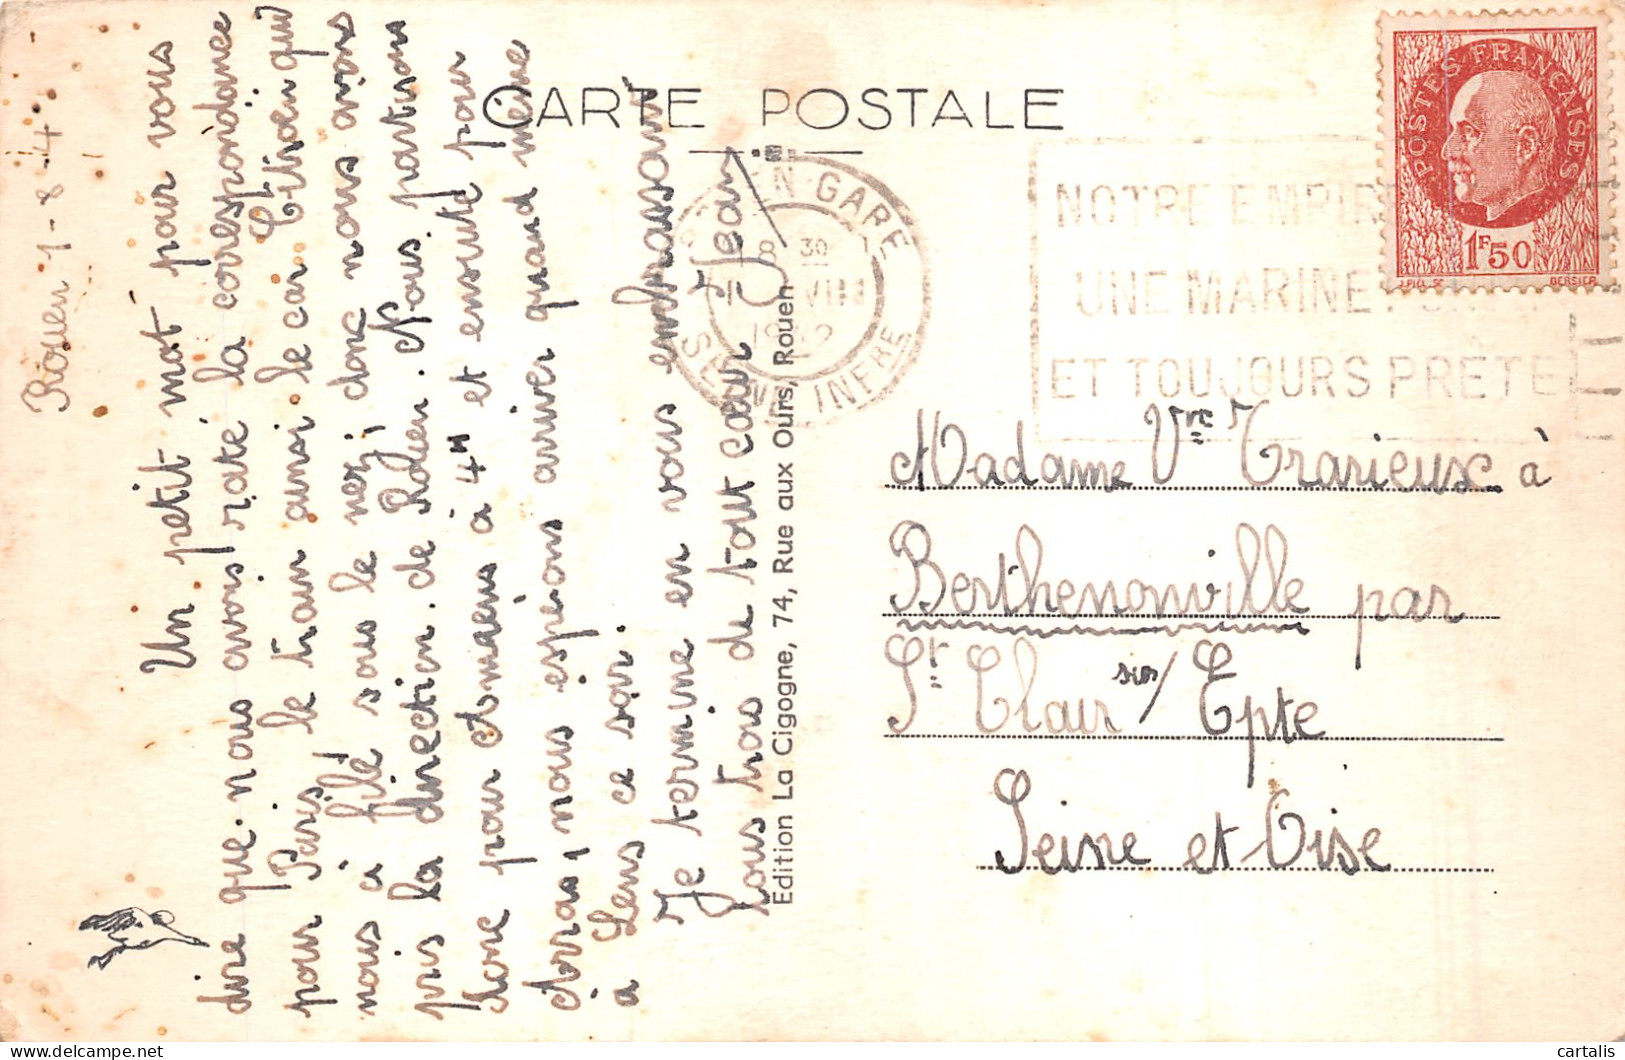 CARTE POSTALE
Rouen 1-8-4
Un petit mot pour vous
dire que nous avons raté la correspondance
pour Paris, le train ainsi le car Citroën qui
nous a filé sous le nez, donc nous avons
pris la direction de Rouen. Nous partirons
pour Amiens à 4H et ensuite pour
Arras, nous espérons arriver quand même
à Lens ce soir.
Je termine en vous embrassant
tous trois de tout cœur Jean
Édition La Cigogne, 74, Rue aux Ours, Rouen
POSTES FRANÇAISES
1F50
J.PIEL SC BERSIER
GARE
8 30
VIII
SEINE INFRE
NOTRE EMPIRE
UNE MARINE
ET TOUJOURS PRETE
Madame Vve Trarieux à
Berthenonville par
St Clair sur/ Epte
Seine et Oise
cartalis